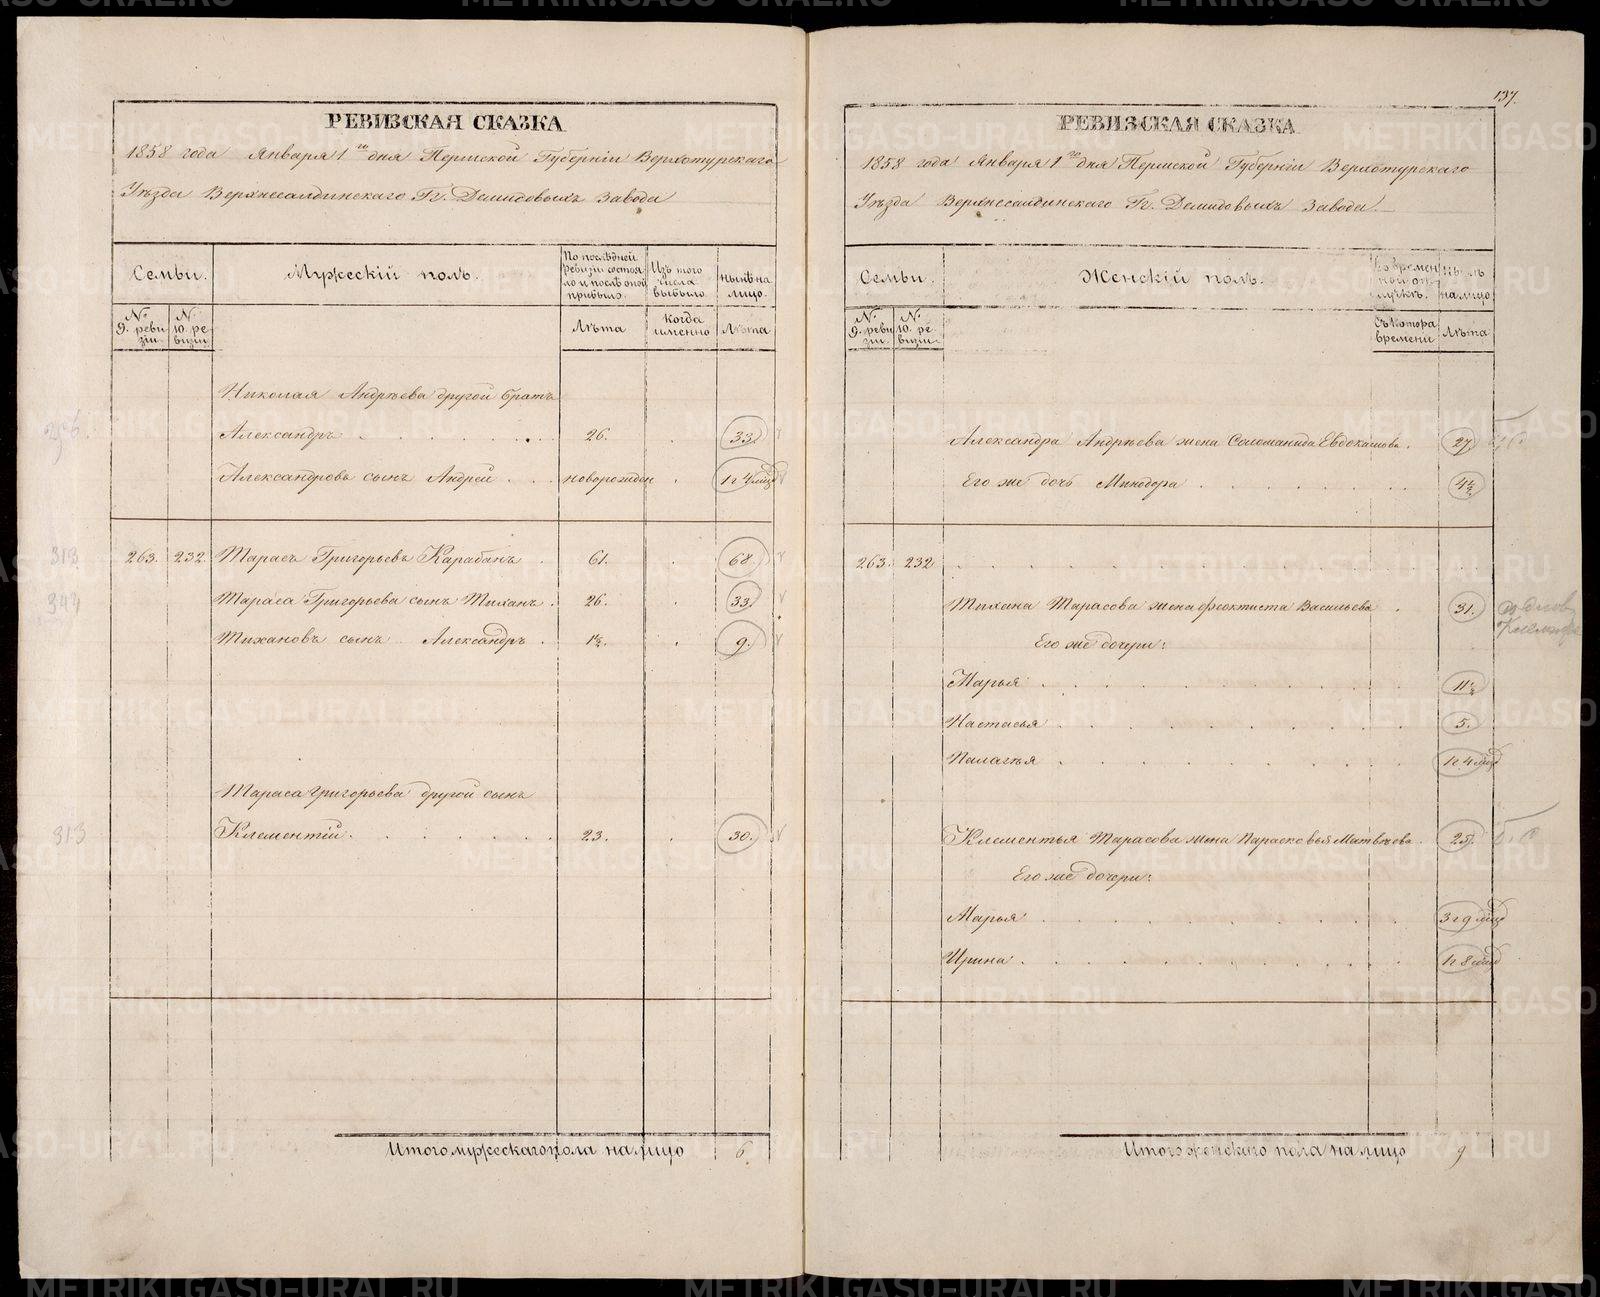 РЕВИЗСКАЯ СКАЗКА
1858 года Января 1го дня Пермской Губерніи Верхотурскаго
Уѣзда Верхнесалдинскаго Гг. Демидовыхъ Завода
Семьи.
Мужескій полъ.
По послѣдней ревизіи состояло и послѣ оной прибыло.
Изъ того числа выбыло.
нынѣ на лицо.
№ 9. ревизіи
№ 10. ревизіи
Лѣта
Когда именно
Лѣта
Николая Андрѣева другой братъ
256.
Александръ . . . . . . 26. . 33.
Александровъ сынъ Андрей . . . новорожден . 1 г 4 мцд
313 263. 232. Тарасъ Григорьевъ Карабанъ . 61. . 68.
344 Тараса Григорьева сынъ Тиханъ . 26. . 33.
Тихановъ сынъ Александръ . 1½. . 9.
Тараса Григорьева другой сынъ
313 Клементій . . . . . . 23. . 30.
Итого мужескаго пола на лицо 6.
137.
РЕВИЗСКАЯ СКАЗКА
1858 года Января 1го дня Пермской Губерніи Верхотурскаго
Уѣзда Верхнесалдинскаго Гг. Демидовыхъ Завода.
Семьи.
Женскій полъ.
Во временной отлучкѣ.
нынѣ на лицо
№ 9. ревизіи
№ 10. ревизіи
Съ котора времени
Лѣта
Александра Андрѣева жена Саломанида Евдокимова . 27.
Его же дочь Минодора . . . . . . 4½
263. 232
Тихана Тарасова жена Феоктиста Васильева . 31.
Его же дочери:
Марья . . . . . . 11½
Настасья . . . . . . 5.
Палагѣя . . . . . . 1 г 4 мцд
Клементья Тарасова жена Парасковья Матвѣева . 25.
Его же дочери:
Марья . . . . . . 3 г 9 мцд
Ирина . . . . . . 1 г 8 мцд
Итого женскаго пола на лицо 9
METRIKI.GASO-URAL.RU